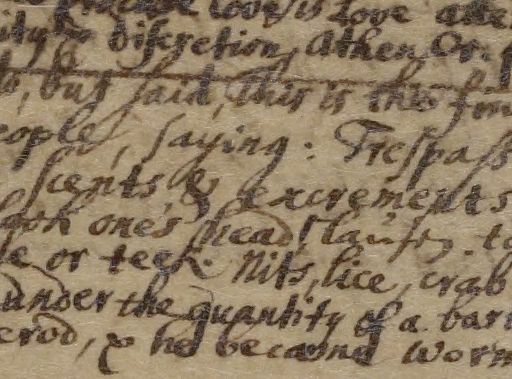 love is Love
ity & discretion, Athen. Or.
, but said, This is this
eople, saying: Trespass
scents, & excrements
one's head, to
le or teeth. Nits, lice, crab
under the quantity of a
erod, & he became worm